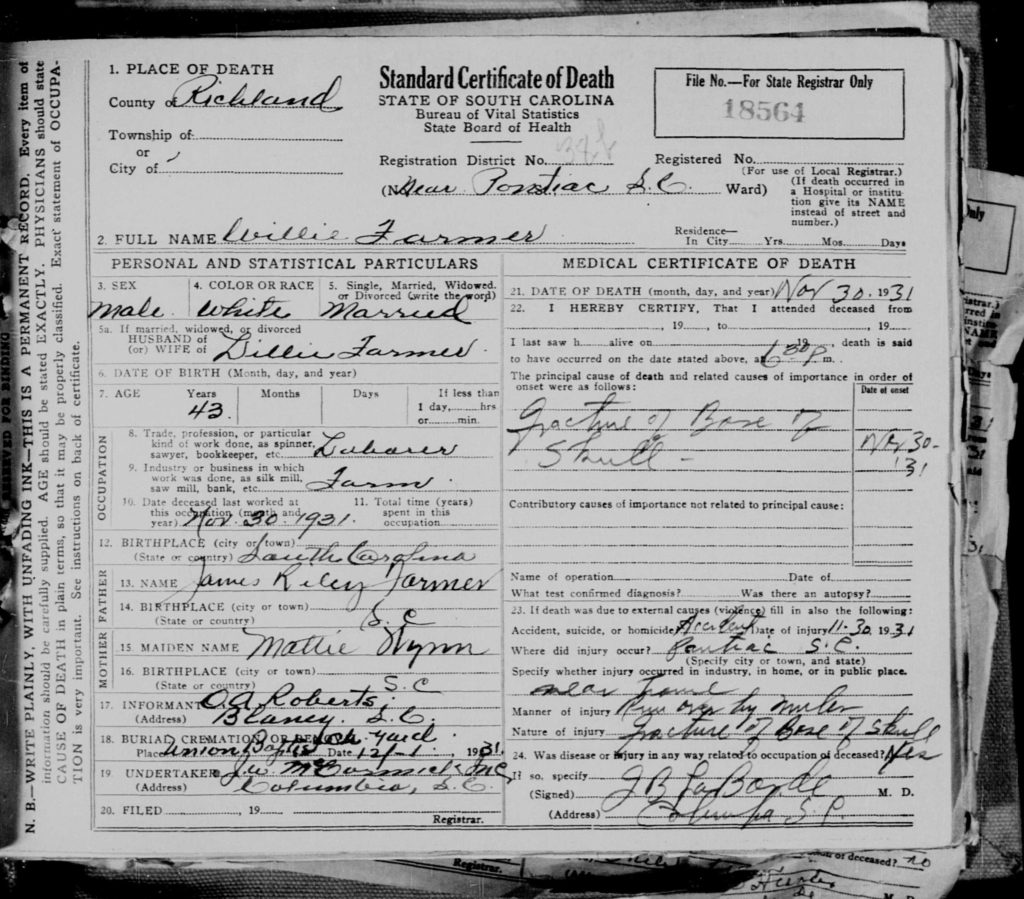 N. B.—WRITE PLAINLY, WITH UNFADING INK—THIS IS A PERMANENT RECORD. Every item of
information should be carefully supplied. AGE should be stated EXACTLY. PHYSICIANS should state
CAUSE OF DEATH in plain terms, so that it may be properly classified. Exact statement of OCCUPA-
TION is very important. See instructions on back of certificate.
RESERVED FOR BINDING
1. PLACE OF DEATH
County of Richland
Township of
or
City of
Standard Certificate of Death
STATE OF SOUTH CAROLINA
Bureau of Vital Statistics
State Board of Health
File No.—For State Registrar Only
18564
Registration District No.
Registered No.
(For use of Local Registrar.)
(No. Near Pontiac S.C. Ward)
(If death occurred in
a Hospital or institu-
tion give its NAME
instead of street and
number.)
2. FULL NAME Willie Farmer
Residence—
In City Yrs. Mos. Days
PERSONAL AND STATISTICAL PARTICULARS
3. SEX
4. COLOR OR RACE
5. Single, Married, Widowed,
or Divorced (write the word)
Male White Married
5a. If married, widowed, or divorced
HUSBAND of
(or) WIFE of Lillie Farmer
6. DATE OF BIRTH (Month, day, and year)
7. AGE Years Months Days If less than
43 1 day, hrs
or min.
OCCUPATION
8. Trade, profession, or particular
kind of work done, as spinner,
sawyer, bookkeeper, etc. Laborer
9. Industry or business in which
work was done, as silk mill,
saw mill, bank, etc. Farm
10. Date deceased last worked at
this occupation (month and
year) Nov. 30 1931.
11. Total time (years)
spent in this
occupation
12. BIRTHPLACE (city or town)
(State or country) South Carolina
FATHER
13. NAME James Riley Farmer
14. BIRTHPLACE (city or town)
(State or country) S.C
MOTHER
15. MAIDEN NAME Mattie Wynn
16. BIRTHPLACE (city or town)
(State or country) S.C
17. INFORMANT O.A. Roberts
(Address) Blaney, S.C.
18. BURIAL CREMATION OR REMOVAL
Place Union Baptist Ch. Yard Date 12/1 1931.
19. UNDERTAKER J.W. McCormick Inc
(Address) Columbia, S.C.
20. FILED 19
Registrar.
MEDICAL CERTIFICATE OF DEATH
21. DATE OF DEATH (month, day, and year) Nov 30. 1931
22. I HEREBY CERTIFY, That I attended deceased from
, 19 , to , 19
I last saw h alive on 19 , death is said
to have occurred on the date stated above, at 6 30 P. m.
The principal cause of death and related causes of importance in order of
onset were as follows:
Date of onset
Fracture of Base of
Skull -
Nov 30-
'31
Contributory causes of importance not related to principal cause:
Name of operation Date of
What test confirmed diagnosis? Was there an autopsy?
23. If death was due to external causes (violence) fill in also the following:
Accident, suicide, or homicide? Accident Date of injury 11-30, 1931
Where did injury occur? Pontiac S.C.
(Specify city or town, and state)
Specify whether injury occurred in industry, in home, or in public place.
near home
Manner of injury Run over by mules
Nature of injury Fracture of Base of Skull
24. Was disease or injury in any way related to occupation of deceased? Yes
If so, specify
(Signed) J B LaBorde M. D.
(Address) Columbia S.C.
Registrar.
of deceased? no